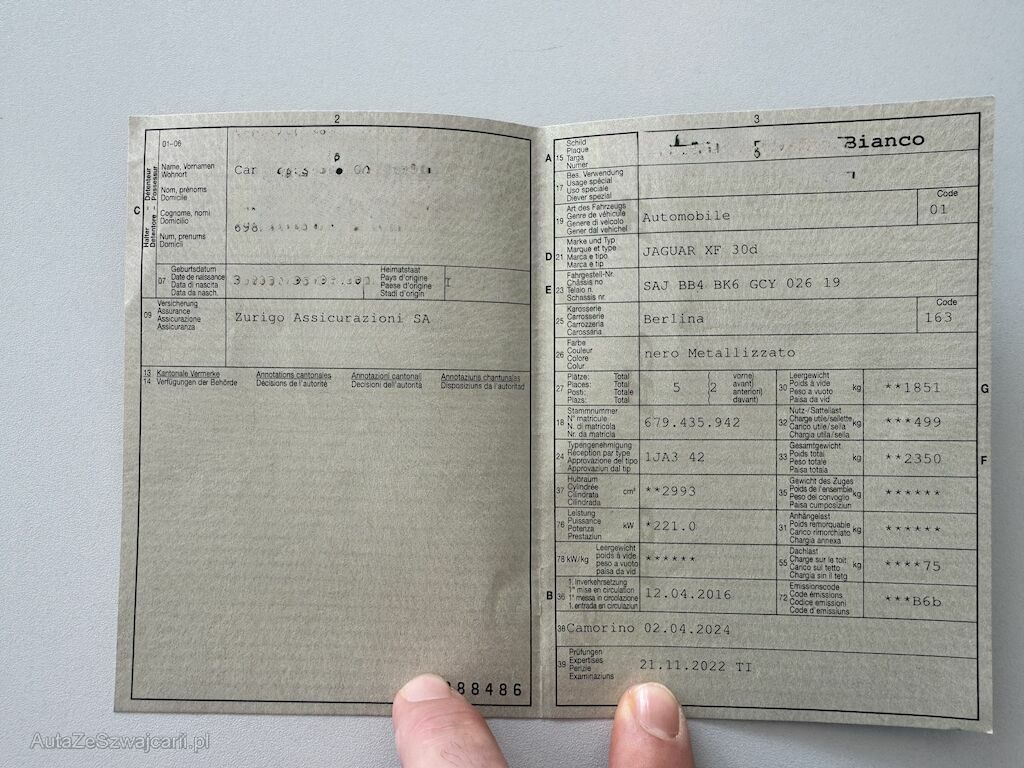 2
01-06
C
Halter Détenteur
Detentore Possessur
Name, Vornamen
Wohnort
Nom, prénoms
Domicile
Cognome, nomi
Domicilio
Num, prenums
Domicil
698.
07
Geburtsdatum
Date de naissance
Data di nascita
Data da nasch.
Heimatstaat
Pays d'origine
Paese d'origine
Stadi d'origin
I
09
Versicherung
Assurance
Assicurazione
Assicuranza
Zurigo Assicurazioni SA
13 Kantonale Vermerke Annotations cantonales Annotazioni cantonali Annotaziuns chantunalas
14 Verfügungen der Behörde Décisions de l'autorité Decisioni dell'autorità Disposiziuns da l'autoritad
88486
3
A 15
Schild
Plaque
Targa
Numer
Bianco
17
Bes. Verwendung
Usage spécial
Uso speciale
Diever spezial
19
Art des Fahrzeugs
Genre de véhicule
Genere di veicolo
Gener dal vehichel
Automobile
Code
01
D 21
Marke und Typ
Marque et type
Marca e tipo
Marca e tip
JAGUAR XF 30d
E 23
Fahrgestell-Nr.
Châssis no
Telaio n.
Schassis nr.
SAJ BB4 BK6 GCY 026 19
25
Karosserie
Carrosserie
Carrozzeria
Carossaria
Berlina
Code
163
26
Farbe
Couleur
Colore
Colur
nero Metallizzato
27
Plätze: Total
Places: Total
Posti: Totale
Plazs: Total
5 (2
vorne)
avant)
anteriori)
davant)
30
Leergewicht
Poids à vide
Peso a vuoto
Paisa da vid
kg
**1851
G
18
Stammnummer
N° matricule
N. di matricola
Nr. da matricla
679.435.942
32
Nutz-/Sattellast
Charge utile/sellette
Carico utile/sella
Chargia utila/sella
kg
***499
24
Typengenehmigung
Réception par type
Approvazione del tipo
Approvaziun dal tip
1JA3 42
33
Gesamtgewicht
Poids total
Peso totale
Paisa totala
kg
**2350
F
37
Hubraum
Cylindrée
Cilindrata
Cilindrada
cm³
**2993
35
Gewicht des Zuges
Poids de l'ensemble
Peso del convoglio
Paisa cumposiziun
kg
******
76
Leistung
Puissance
Potenza
Prestaziun
kW
*221.0
31
Anhängelast
Poids remorquable
Carico rimorchiato
Chargia annexa
kg
******
78 kW/kg
Leergewicht
poids à vide
peso a vuoto
paisa da vid
******
55
Dachlast
Charge sur le toit
Carico sul tetto
Chargia sin il tetg
kg
****75
B 36
1. Inverkehrsetzung
1re mise en circulation
1a messa in circolazione
1. entrada en circulaziun
12.04.2016
72
Emissionscode
Code émissions
Codice emissioni
Code d'emissiuns
***B6b
38 Camorino 02.04.2024
39
Prüfungen
Expertises
Perizie
Examinaziuns
21.11.2022 TI
AutaZeSzwajcarii.pl